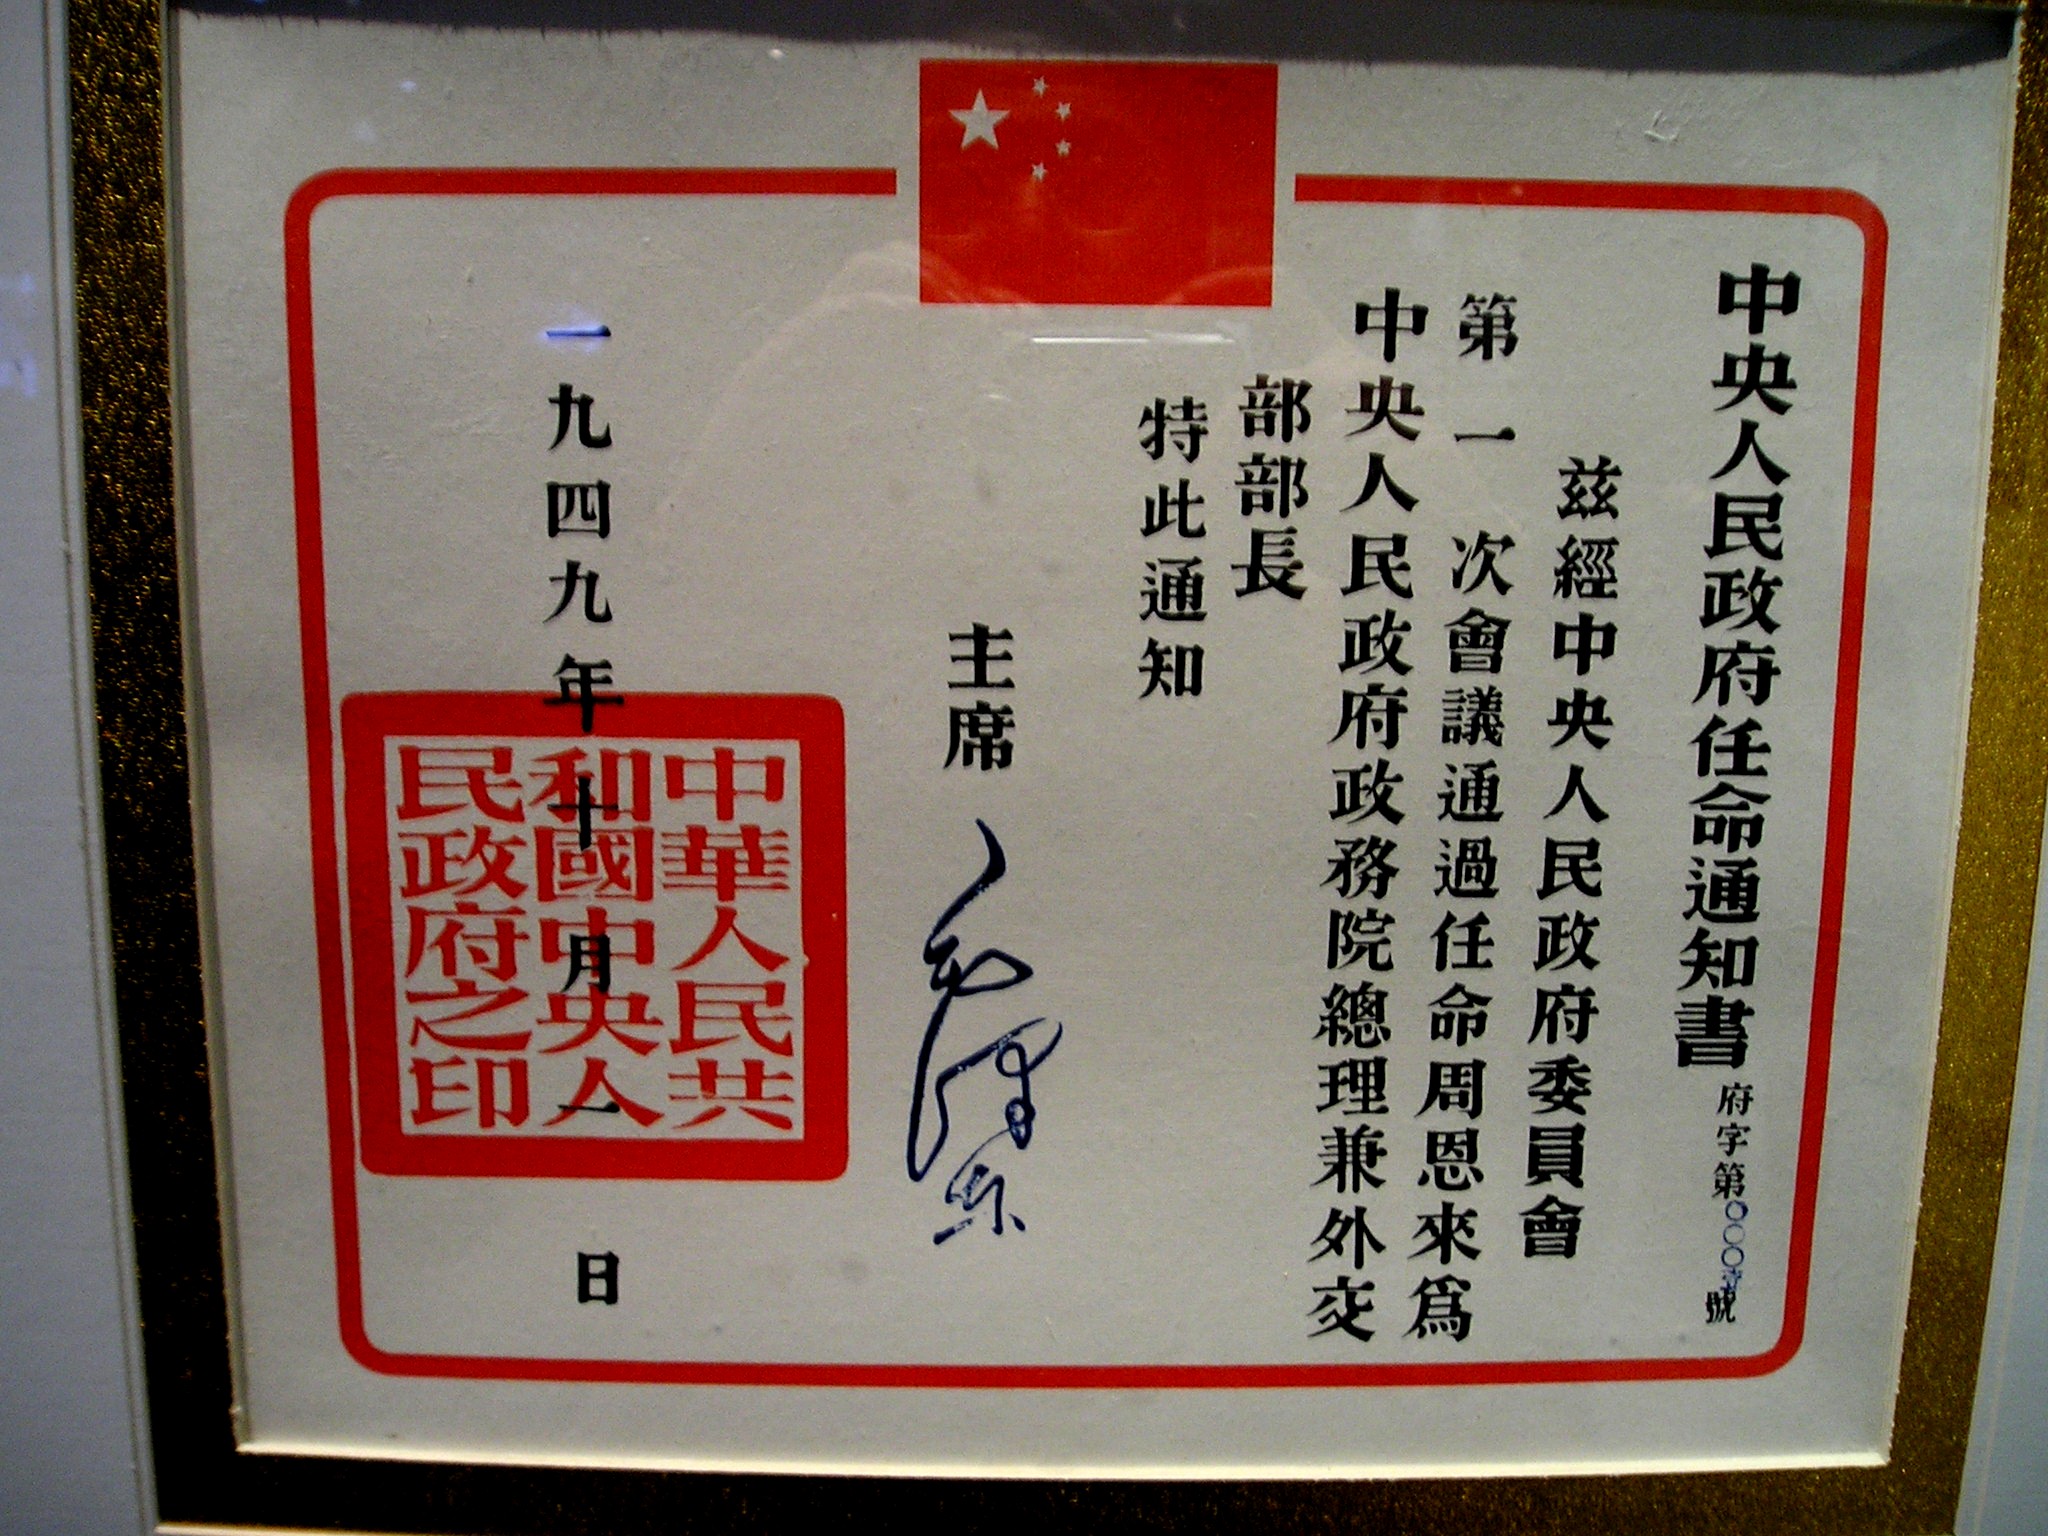 中央人民政府任命通知書 府字第〇〇〇壹號
兹經中央人民政府委員會
第一次會議通過任命周恩來爲
中央人民政府政務院總理兼外交
部部長
特此通知
主席 毛澤東
一九四九年十月一日
中華人民共
和國中央人
民政府之印